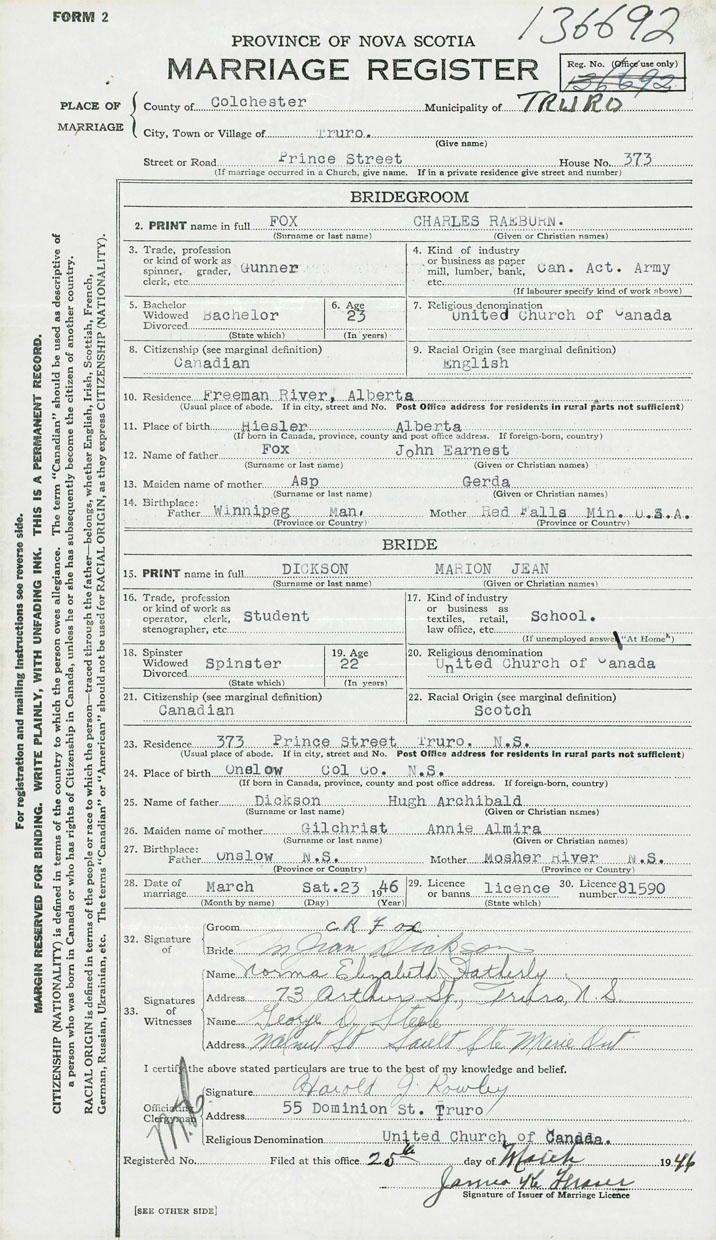 FORM 2
136692
PROVINCE OF NOVA SCOTIA
MARRIAGE REGISTER
Reg. No. (Office use only)
136692
PLACE OF MARRIAGE
County of Colchester Municipality of TRURO
City, Town or Village of Truro.
(Give name)
Street or Road Prince Street House No. 373
(If marriage occurred in a Church, give name. If in a private residence give street and number)
BRIDEGROOM
2. PRINT name in full FOX CHARLES RAEBURN.
(Surname or last name) (Given or Christian names)
3. Trade, profession or kind of work as spinner, grader, clerk, etc. Gunner
4. Kind of industry or business as paper mill, lumber, bank, etc. Can. Act. Army
(If labourer specify kind of work above)
5. Bachelor Widowed Divorced Bachelor
(State which)
6. Age 23
(In years)
7. Religious denomination United Church of Canada
8. Citizenship (see marginal definition) Canadian
9. Racial Origin (see marginal definition) English
10. Residence Freeman River, Alberta
(Usual place of abode. If in city, street and No. Post Office address for residents in rural parts not sufficient)
11. Place of birth Hiesler Alberta
(If born in Canada, province, county and post office address. If foreign-born, country)
12. Name of father Fox John Earnest
(Surname or last name) (Given or Christian names)
13. Maiden name of mother Asp Gerda
(Surname or last name) (Given or Christian names)
14. Birthplace: Father Winnipeg Man. Mother Red Falls Min. U.S.A.
(Province or Country) (Province or Country)
BRIDE
15. PRINT name in full DICKSON MARION JEAN
(Surname or last name) (Given or Christian names)
16. Trade, profession or kind of work as operator, clerk, stenographer, etc. Student
17. Kind of industry or business as textiles, retail, law office, etc. School.
(If unemployed answer "At Home")
18. Spinster Widowed Divorced Spinster
(State which)
19. Age 22
(In years)
20. Religious denomination United Church of Canada
21. Citizenship (see marginal definition) Canadian
22. Racial Origin (see marginal definition) Scotch
23. Residence 373 Prince Street Truro. N.S.
(Usual place of abode. If in city, street and No. Post Office address for residents in rural parts not sufficient)
24. Place of birth Onslow Col Co. N.S.
(If born in Canada, province, county and post office address. If foreign-born, country)
25. Name of father Dickson Hugh Archibald
(Surname or last name) (Given or Christian names)
26. Maiden name of mother Gilchrist Annie Almira
(Surname or last name) (Given or Christian names)
27. Birthplace: Father Onslow N.S. Mother Mosher River N.S.
(Province or Country) (Province or Country)
28. Date of marriage March Sat.23 1946
(Month by name) (Day) (Year)
29. Licence or banns licence
(State which)
30. Licence number 81590
32. Signature of
Groom C R Fox
Bride M Jean Dickson
33. Signatures of Witnesses
Name Norma Elizabeth Hatherly
Address 73 Arthur St, Truro, N.S.
Name George D. Steele
Address Walnut St Sault Ste Marie Ont
I certify the above stated particulars are true to the best of my knowledge and belief.
Officiating Clergyman
Signature Harold J Rowley
Address 55 Dominion St. Truro
Religious Denomination United Church of Canada.
Registered No. Filed at this office 25th day of March 1946
James K Fraser
Signature of Issuer of Marriage Licence
[SEE OTHER SIDE]
For registration and mailing instructions see reverse side.
MARGIN RESERVED FOR BINDING. WRITE PLAINLY, WITH UNFADING INK. THIS IS A PERMANENT RECORD.
CITIZENSHIP (NATIONALITY) is defined in terms of the country to which the person owes allegiance. The term "Canadian" should be used as descriptive of
a person who was born in Canada or who has rights of Citizenship in Canada, unless he or she has subsequently become the citizen of another country.
RACIAL ORIGIN is defined in terms of the people or race to which the person—traced through the father—belongs, whether English, Irish, Scottish, French,
German, Russian, Ukrainian, etc. The terms "Canadian" or "American" should not be used for RACIAL ORIGIN, as they express CITIZENSHIP (NATIONALITY).